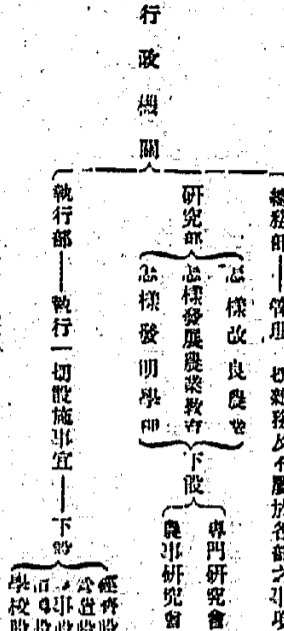 行政機關
總務部——管理一切總務及不屬於各部之事項
研究部
怎樣改良農業
怎樣發展農業教育
怎樣發明學理
下設
專門研究會
農事研究會
執行部——執行一切設施事宜——下設
經濟股
學校股